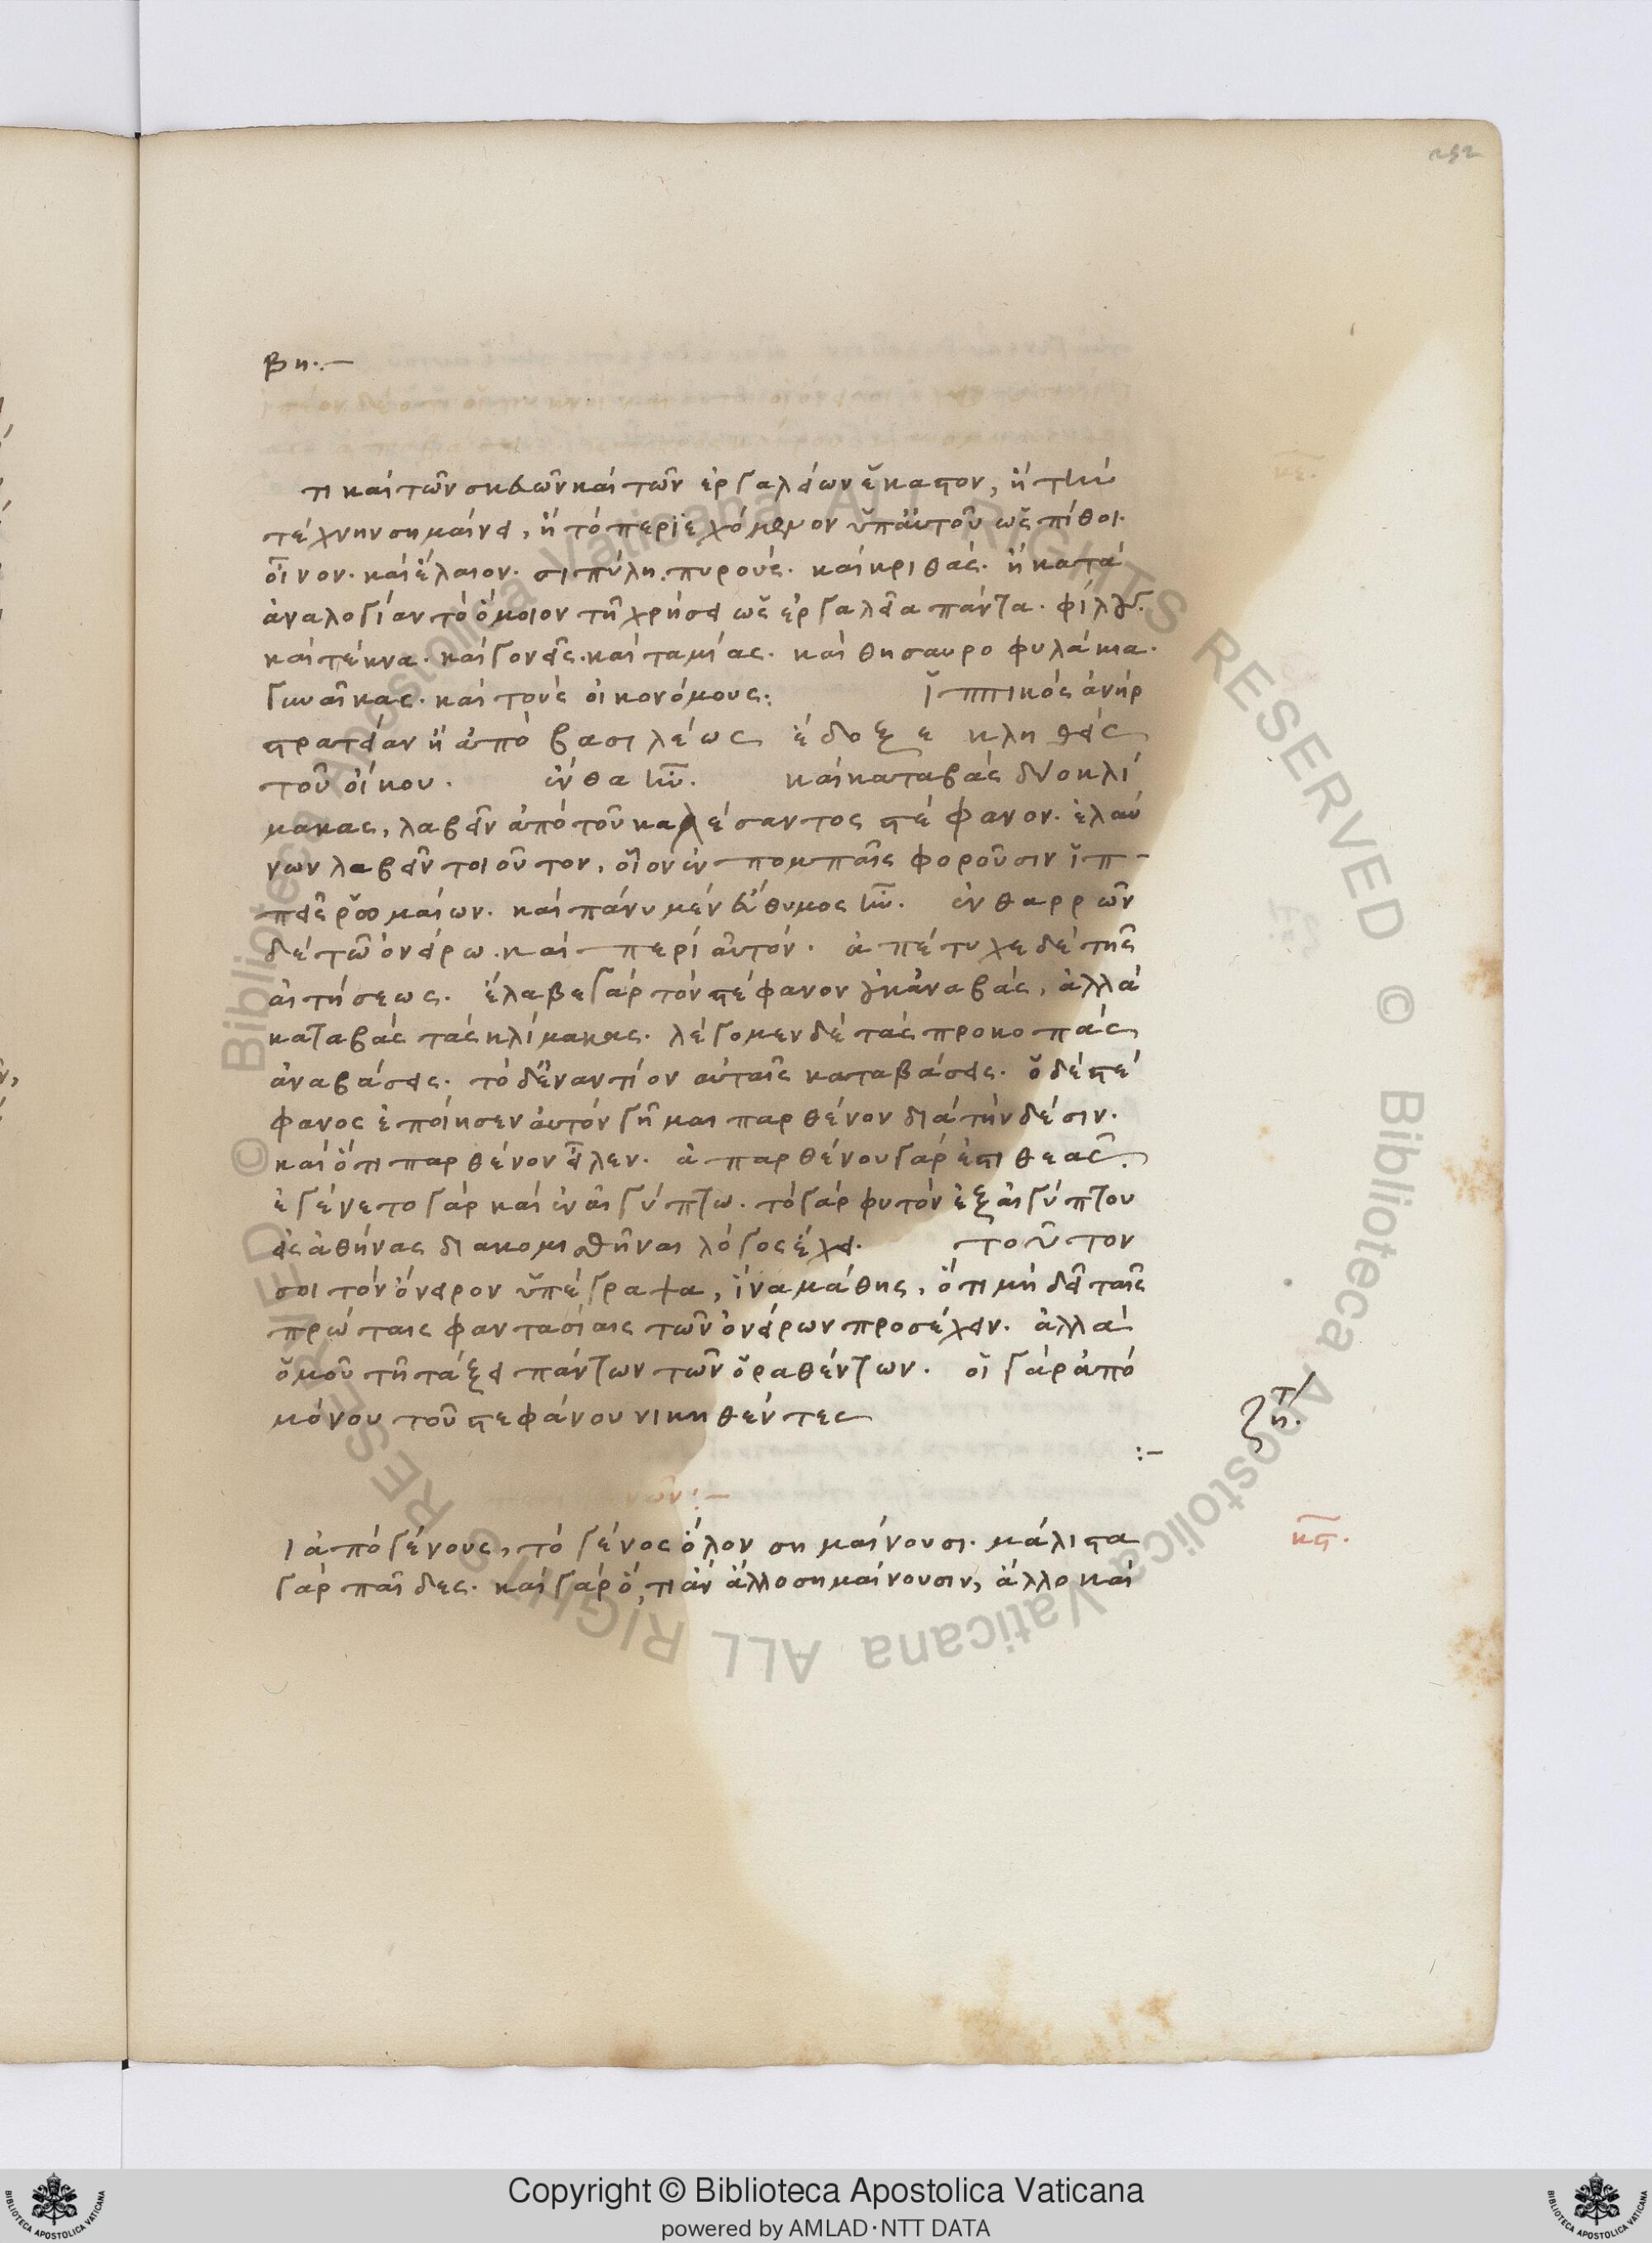 252
βη:—
τι καὶ τῶν σκευῶν καὶ τῶν ἐργαλείων ἕκαστον, ἢ τὴν
τέχνην σημαίνει, ἢ τὸ περιεχόμενον ὑπ' αὐτοῦ ὡς πίθοι.
οἶνον. καὶ ἔλαιον. σιπύλη. πυρούς. καὶ κριθάς. ἢ κατὰ
ἀναλογίαν τὸ ὅμοιον τῇ χρήσει ὡς ἐργαλεῖα πάντα. φίλους.
καὶ τέκνα. καὶ γονεῖς. καὶ ταμίας. καὶ θησαυροφυλάκια.
γυναῖκας. καὶ τοὺς οἰκονόμους: ἱππικὸς ἀνὴρ
στρατείαν ἢ ἀπὸ βασιλέως ἔδοξε κληθεὶς
τοῦ οἴκου. ἔνθα ἦν. καὶ καταβὰς δύο κλί
μακας, λαβεῖν ἀπὸ τοῦ καλέσαντος στέφανον. ἐλαύ
νων λαβεῖν τοιοῦτον, οἷον ἐν πομπαῖς φοροῦσιν ἱπ-
πεῖς ῥωμαίων. καὶ πάνυ μὲν εὔθυμος ἦν. ἐνθαρρῶν
δὲ τῶ ὀνείρω. καὶ περὶ αὐτόν. ἀπέτυχε δὲ τῆς
αἰτήσεως. ἔλαβε γὰρ τὸν στέφανον οὐκ ἀναβάς, ἀλλὰ
καταβὰς τὰς κλίμακας. λέγομεν δὲ τὰς προκοπὰς
ἀναβάσεις. τὸ δ' ἐναντίον αὐταῖς καταβάσεις. ὁ δὲ στέ
φανος ἐποίησεν αὐτὸν γῆμαι παρθένον διὰ τὴν δέσιν.
καὶ ὅτι παρθένον εἷλεν. ἀ παρθένου γὰρ ἐστι θεᾶς.
ἐγένετο γὰρ καὶ ἐν αἰγύπτω. τὸ γὰρ φυτὸν ἐξ αἰγύπτου
εἰς ἀθήνας διακομισθῆναι λόγος ἔχει. τοῦτον
σοι τὸν ὄνειρον ὑπέγραψα, ἵνα μάθης, ὅτι μὴ δεῖ ταῖς
πρώταις φαντασίαις τῶν ὀνείρων προσέχειν. ἀλλὰ
ὁμοῦ τῆ τάξει πάντων τῶν ὁραθέντων. οἱ γὰρ ἀπὸ
μόνου τοῦ στεφάνου νικηθέντες
ζητ.
:—
νῶν:—
ι ἀπὸ γένους, τὸ γένος ὅλον σημαίνουσι. μάλιστα
κστ.
γὰρ παῖδες. καὶ γὰρ ὅ,τι ἂν ἄλλο σημαίνουσιν, ἄλλο καὶ
Copyright © Biblioteca Apostolica Vaticana
powered by AMLAD·NTT DATA
© Biblioteca Apostolica Vaticana ALL RIGHTS RESERVED © Biblioteca Apostolica Vaticana ALL RIGHTS RESERVED
BIBLIOTECA APOSTOLICA VATICANA
BIBLIOTECA APOSTOLICA VATICANA